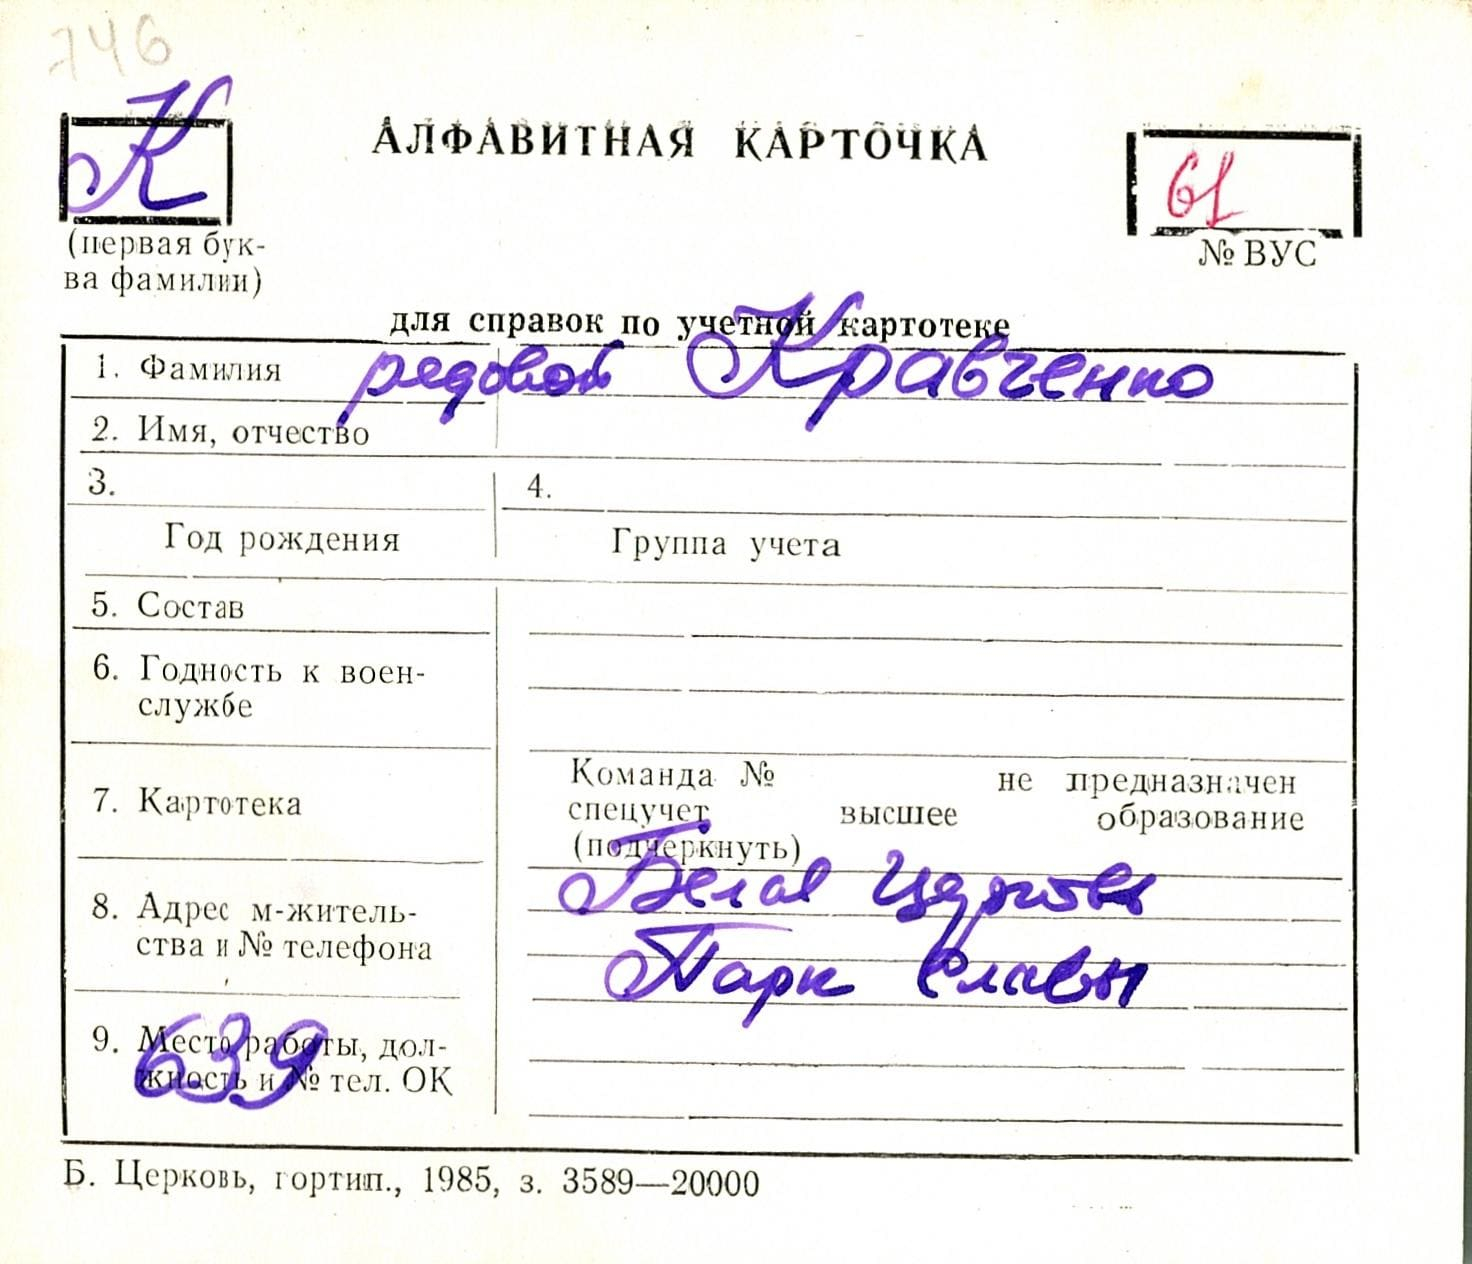 746
К
АЛФАВИТНАЯ КАРТОЧКА
61
(первая бук-
ва фамилии)
№ ВУС
для справок по учетной картотеке
1. Фамилия рядовой Кравченко
2. Имя, отчество
3. 4.
Год рождения Группа учета
5. Состав
6. Годность к воен-
службе
7. Картотека
Команда № не предназначен
спецучет высшее образование
(подчеркнуть)
8. Адрес м-житель-
ства и № телефона
Белая Церковь
Парк Славы
9. Место работы, дол-
жность и № тел. ОК
639
Б. Церковь, гортип., 1985, з. 3589—20000